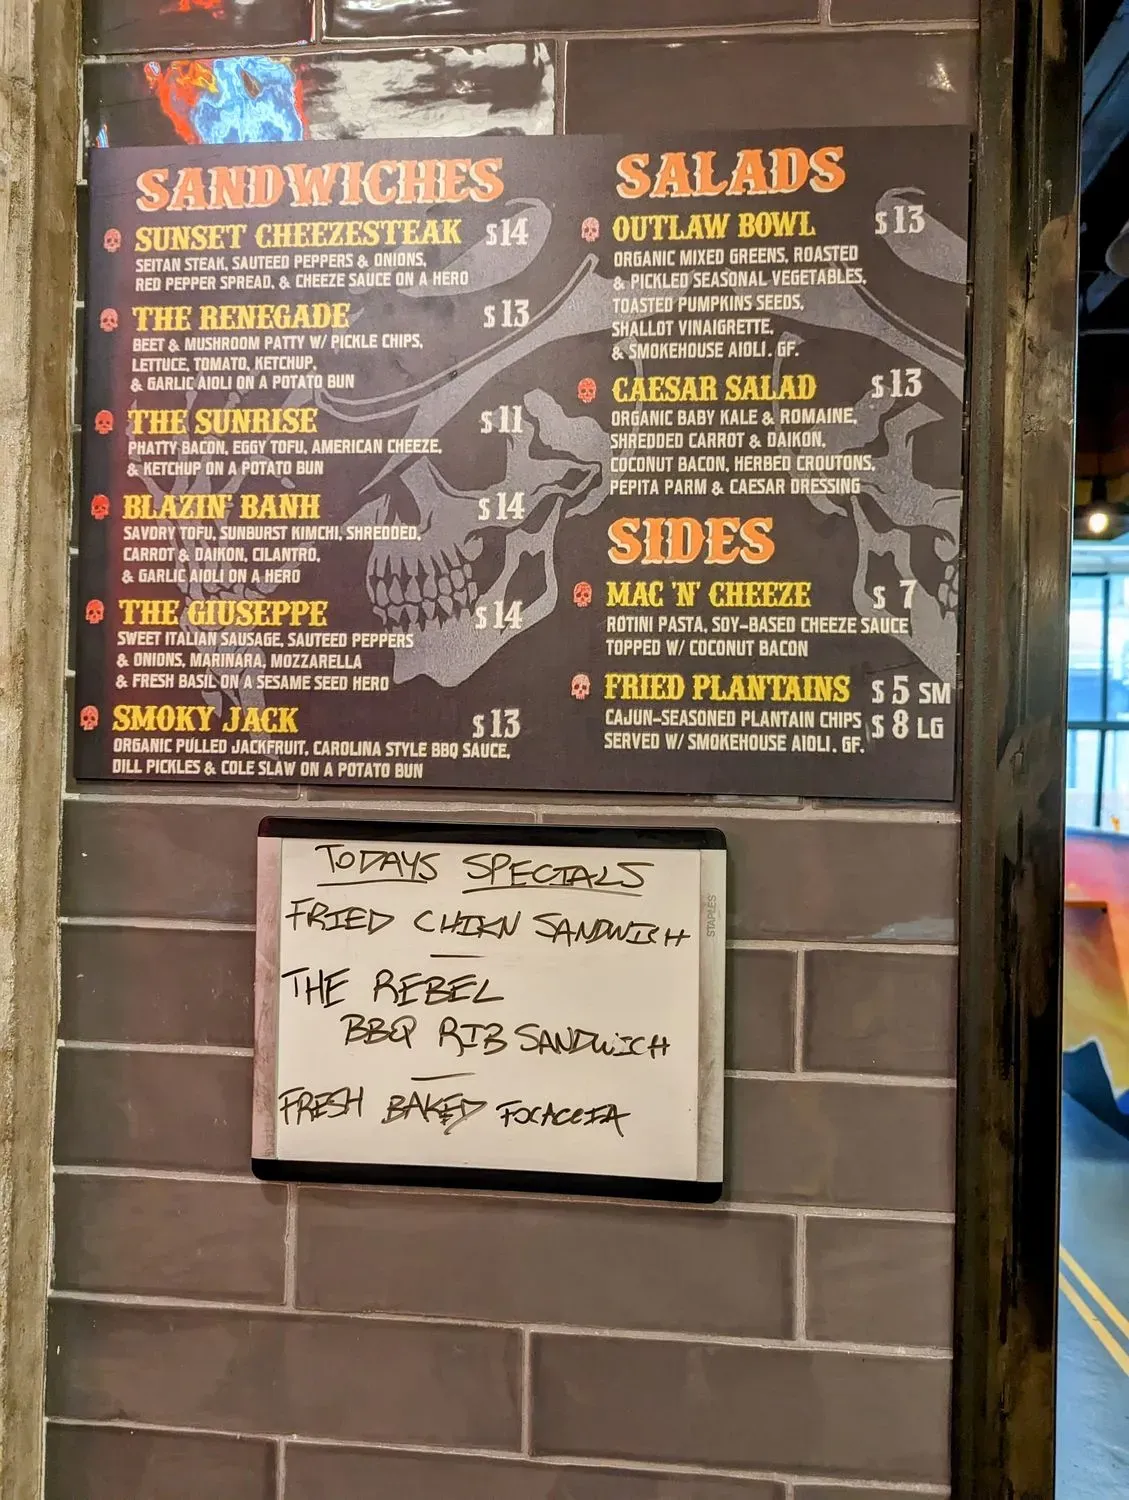 SANDWICHES
SUNSET CHEEZESTEAK $14
SEITAN STEAK, SAUTEED PEPPERS & ONIONS,
RED PEPPER SPREAD, & CHEEZE SAUCE ON A HERO
THE RENEGADE $13
BEET & MUSHROOM PATTY W/ PICKLE CHIPS,
LETTUCE, TOMATO, KETCHUP,
& GARLIC AIOLI ON A POTATO BUN
THE SUNRISE $11
PHATTY BACON, EGGY TOFU, AMERICAN CHEEZE,
& KETCHUP ON A POTATO BUN
BLAZIN' BANH $14
SAVORY TOFU, SUNBURST KIMCHI, SHREDDED,
CARROT & DAIKON, CILANTRO,
& GARLIC AIOLI ON A HERO
THE GIUSEPPE $14
SWEET ITALIAN SAUSAGE, SAUTEED PEPPERS
& ONIONS, MARINARA, MOZZARELLA
& FRESH BASIL ON A SESAME SEED HERO
SMOKY JACK $13
ORGANIC PULLED JACKFRUIT, CAROLINA STYLE BBQ SAUCE,
DILL PICKLES & COLE SLAW ON A POTATO BUN
SALADS
OUTLAW BOWL $13
ORGANIC MIXED GREENS, ROASTED
& PICKLED SEASONAL VEGETABLES,
TOASTED PUMPKINS SEEDS,
SHALLOT VINAIGRETTE,
& SMOKEHOUSE AIOLI. GF.
CAESAR SALAD $13
ORGANIC BABY KALE & ROMAINE,
SHREDDED CARROT & DAIKON,
COCONUT BACON, HERBED CROUTONS,
PEPITA PARM & CAESAR DRESSING
SIDES
MAC 'N' CHEEZE $ 7
ROTINI PASTA, SOY-BASED CHEEZE SAUCE
TOPPED W/ COCONUT BACON
FRIED PLANTAINS $ 5 SM
CAJUN-SEASONED PLANTAIN CHIPS $ 8 LG
SERVED W/ SMOKEHOUSE AIOLI. GF.
TODAYS SPECIALS
FRIED CHIKN SANDWICH
THE REBEL
BBQ RIB SANDWICH
FRESH BAKED FOCACCIA
STAPLES